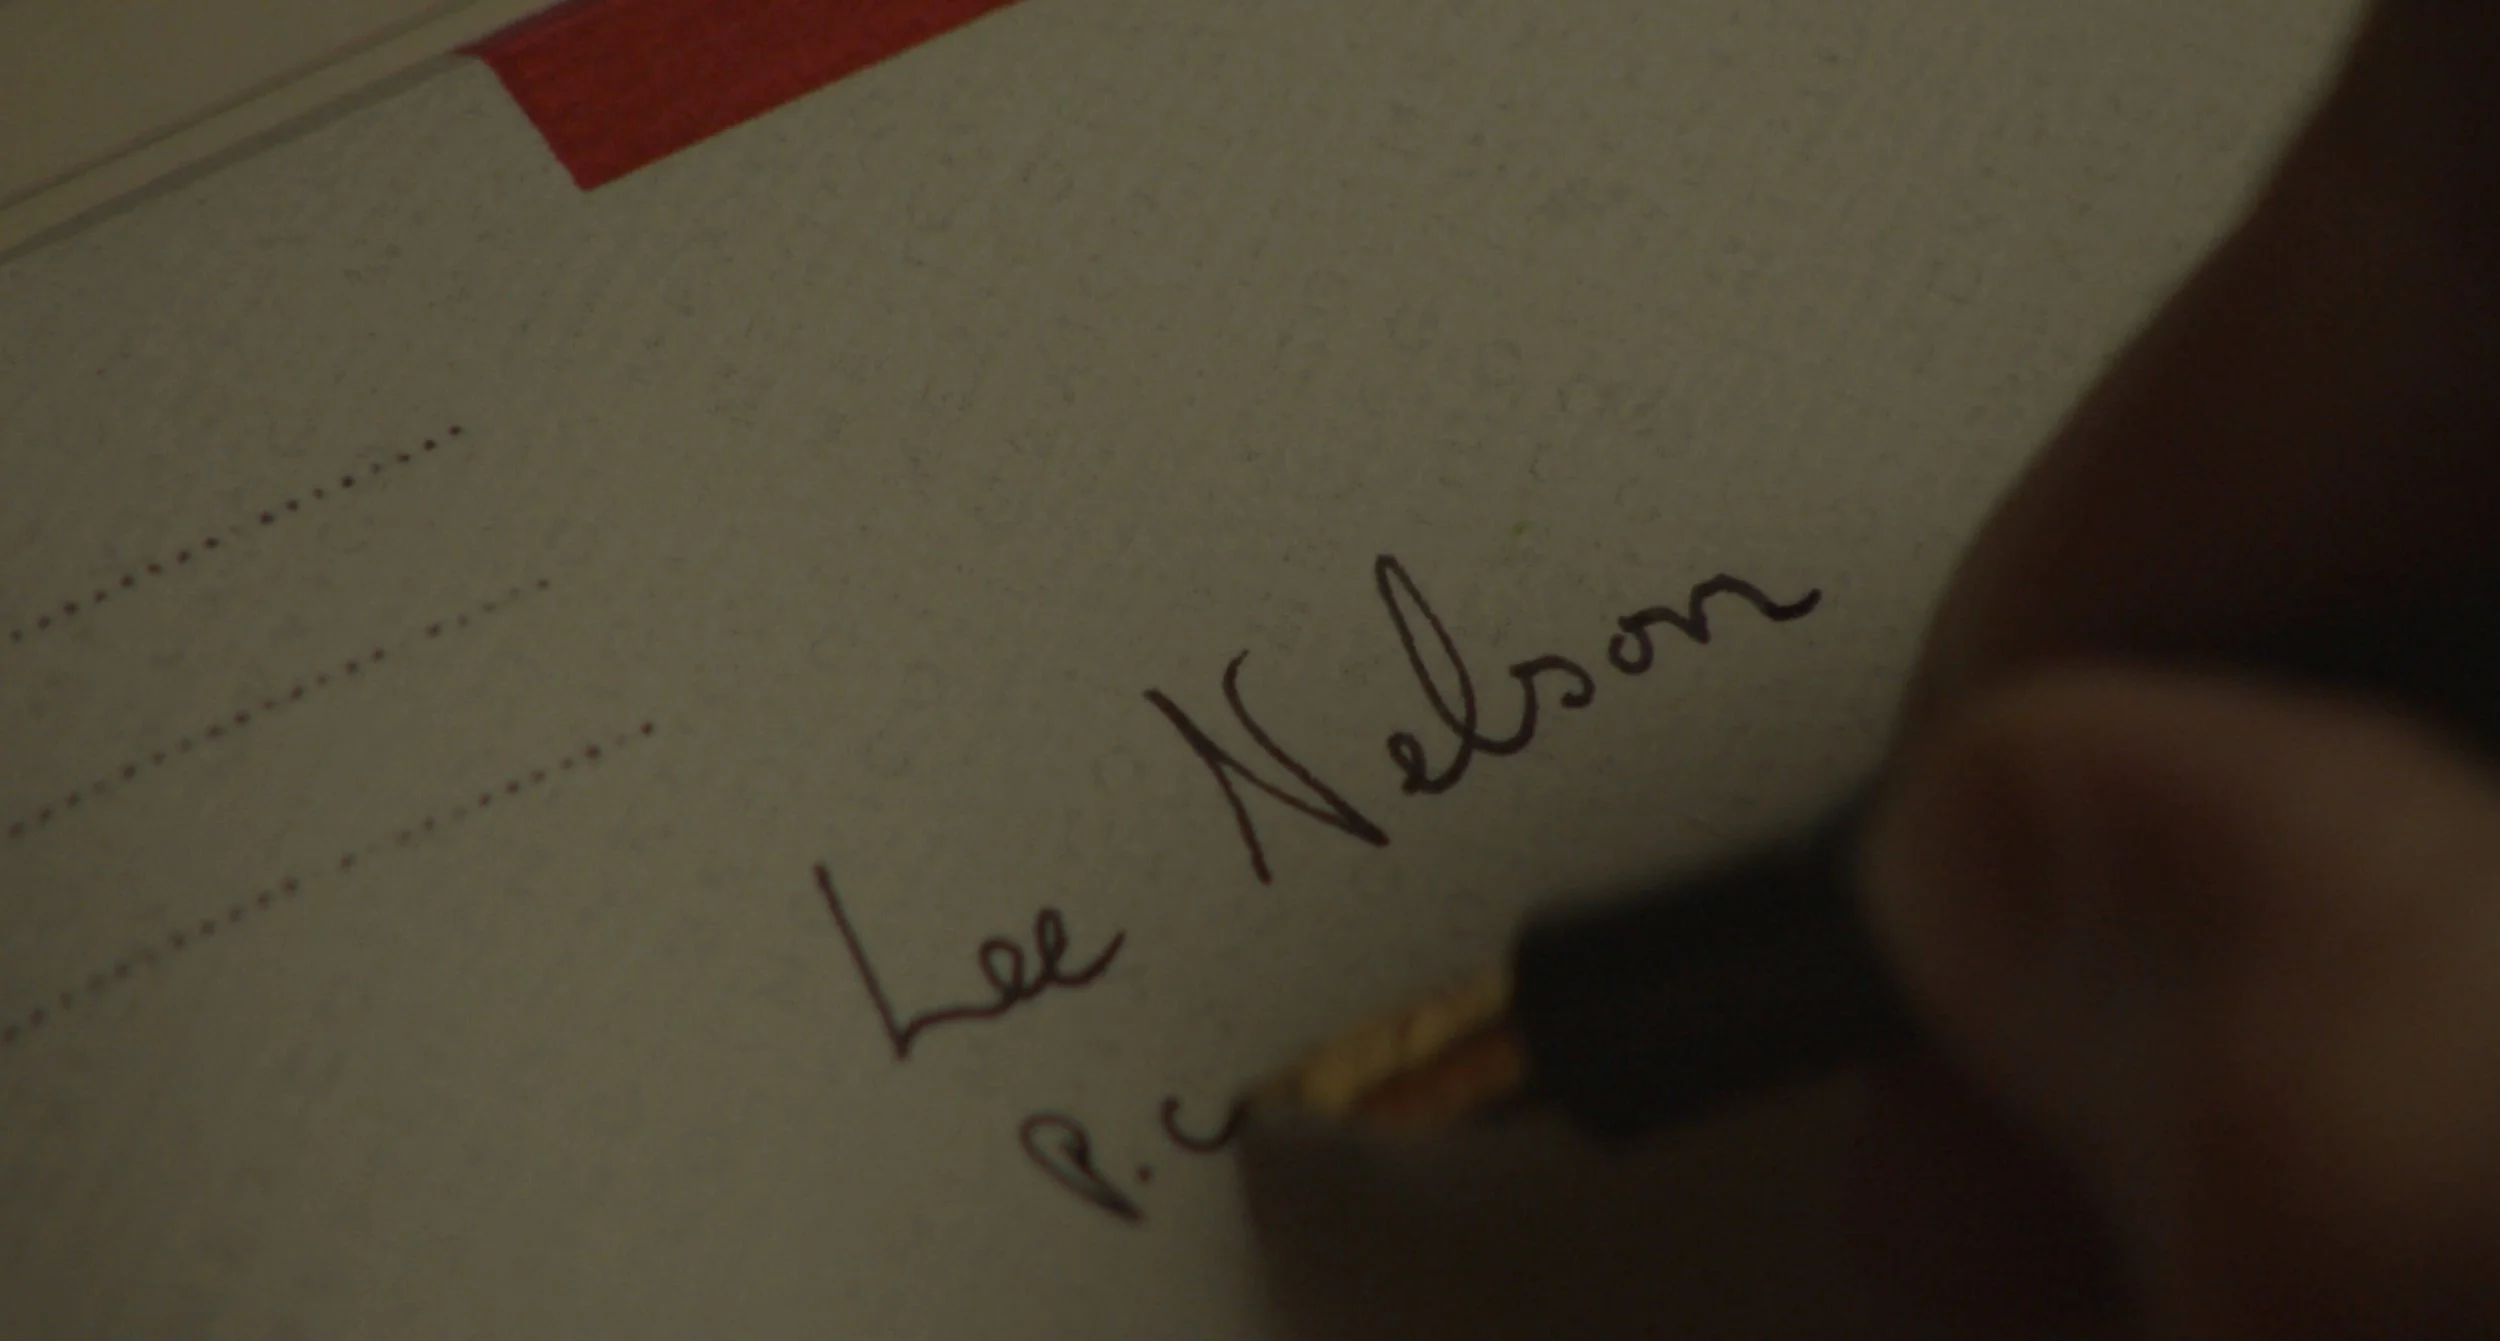 Lee Nelson
P.C